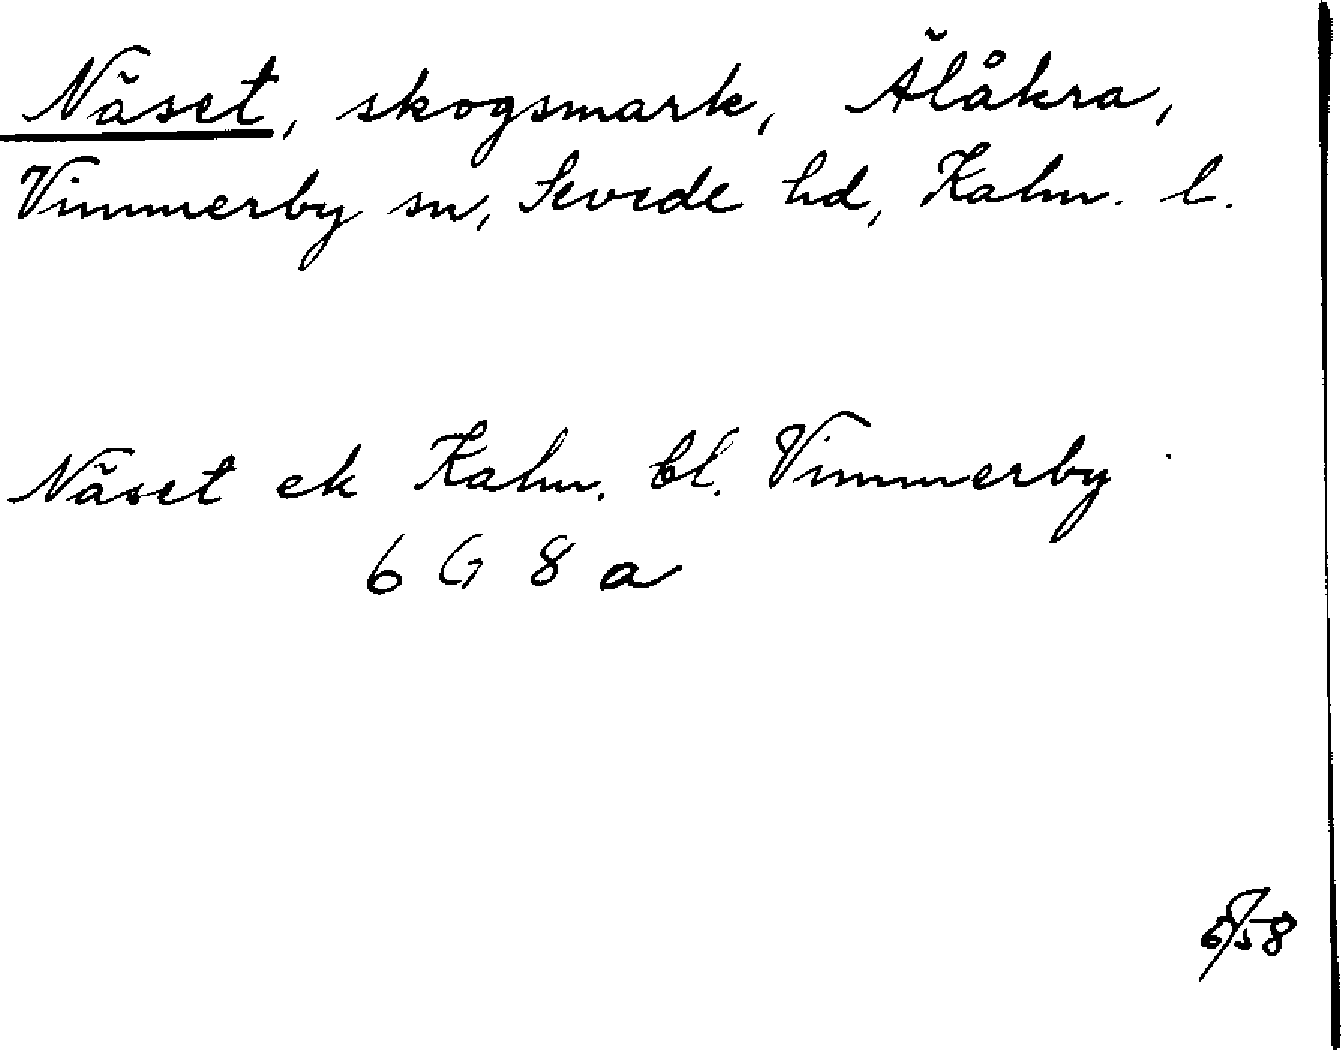 Näset, skogsmark, Älåkra,
Vimmerby sn, Sevede hd, Kalm. l.
Näset ek Kalm. bl. Vimmerby
6 G 8 a